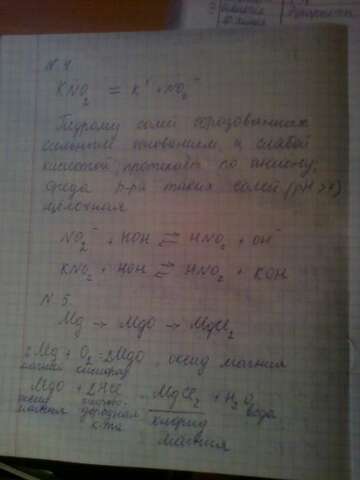 N. 4
KNO₂ = K⁺ + NO₂⁻
Гидролиз солей образованных
сильным основанием и слабой
кислотой, протекает по аниону,
среда р-ра таких солей (pH > 7)
щелочная
NO₂⁻ + HOH ⇄ HNO₂ + OH⁻
KNO₂ + HOH ⇄ HNO₂ + KOH
N 5.
Mg → MgO → MgCl₂
2Mg + O₂ = 2MgO оксид магния
магний кислород
MgO + 2HCl = MgCl₂ + H₂O
оксид хлорово- вода
магния дородная хлорид
к-та магния